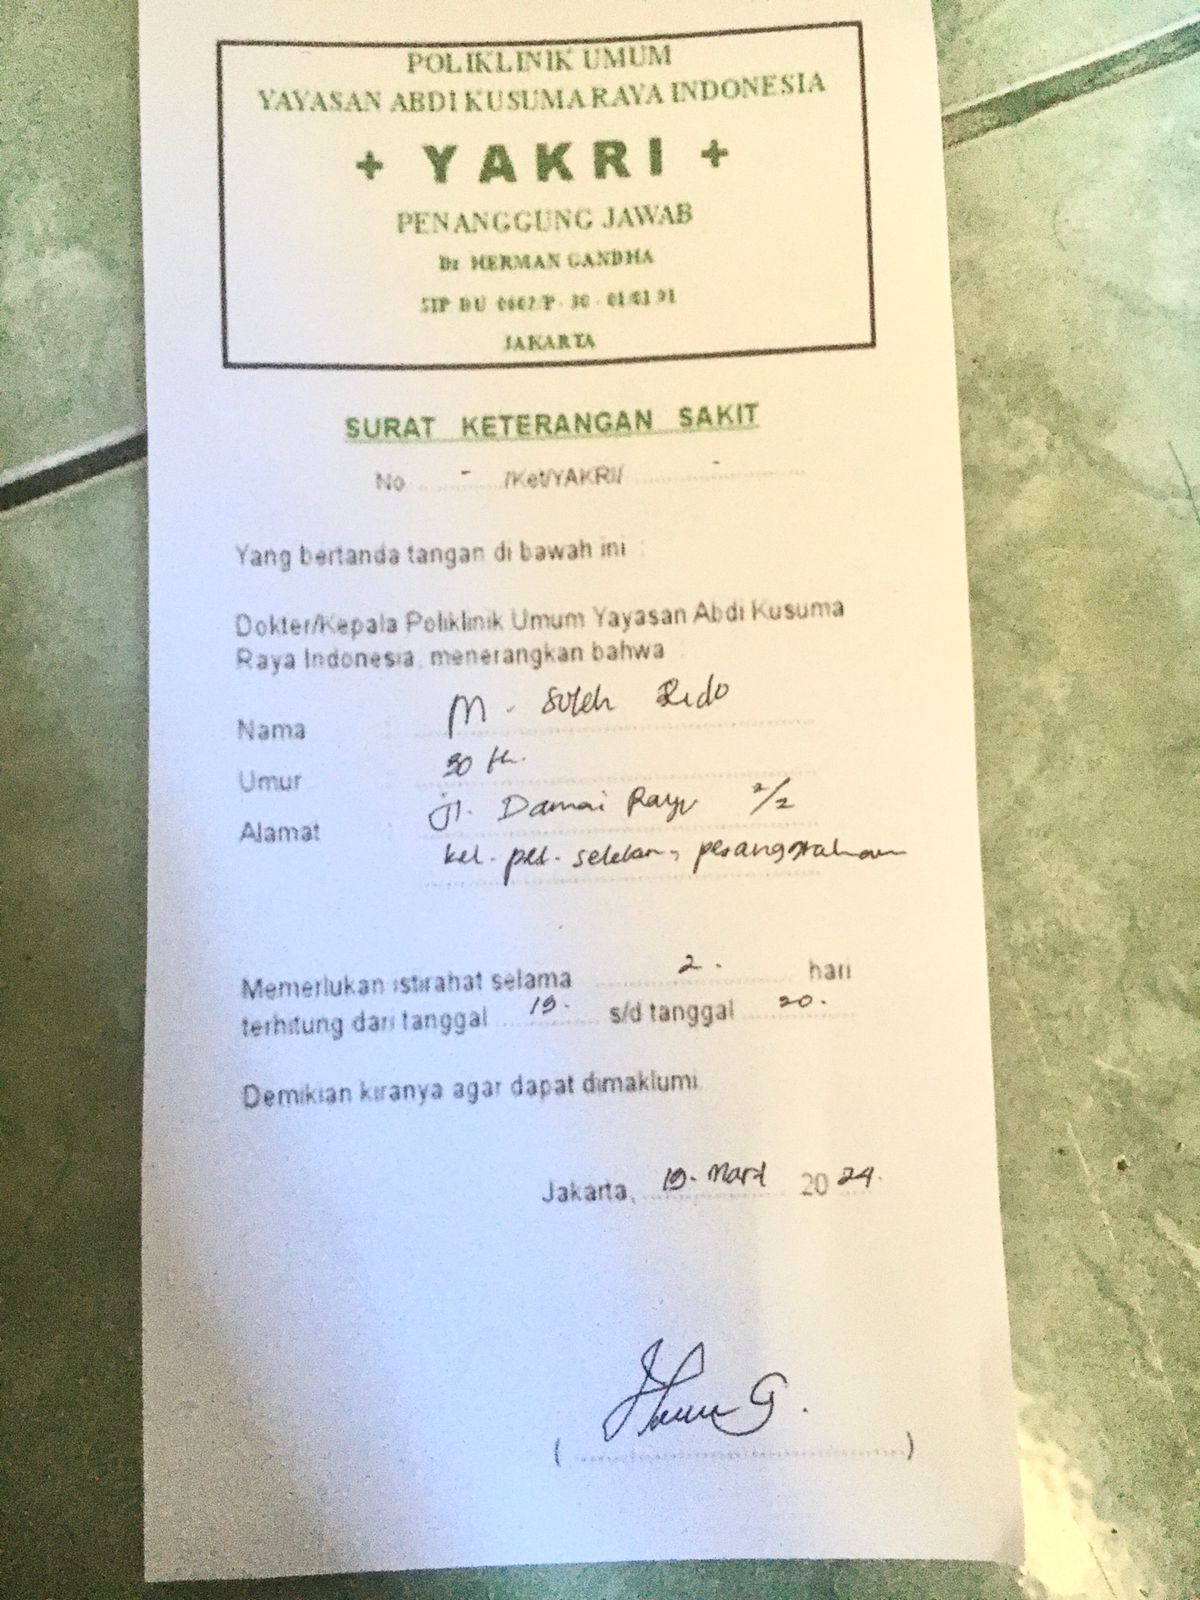 POLIKLINIK UMUM
YAYASAN ABDI KUSUMA RAYA INDONESIA
+ YAKRI +
PENANGGUNG JAWAB
Dr HERMAN GANDHA
SIP DU
JAKARTA
SURAT KETERANGAN SAKIT
No - /Ket/YAKRI/ -
Yang bertanda tangan di bawah ini :
Dokter/Kepala Poliklinik Umum Yayasan Abdi Kusuma
Raya Indonesia, menerangkan bahwa :
Nama : M. Soleh Rido
Umur : 30 th.
Alamat : jl. Damai Raya 2/2
kel. pet. selatan, pesanggrahan
Memerlukan istirahat selama 2. hari
terhitung dari tanggal 19. s/d tanggal 20.
Demikian kiranya agar dapat dimaklumi.
Jakarta, 19. Mart 2024.
( )